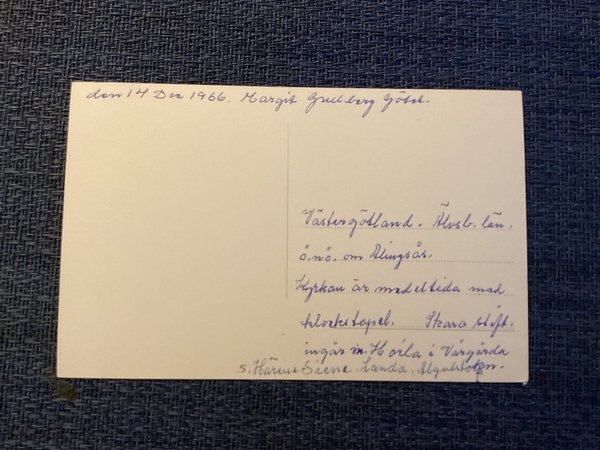 den 14 Dec 1966. Margit Gullberg Göteb.
Västergötland. Älvsb. län.
ö.nö. om Alingsås.
Kyrkan är medeltida med
klockstapel. Skara stift.
ingår m. Horla i Vårgårda
s. Härene Säene, Landa, Algutstorp.